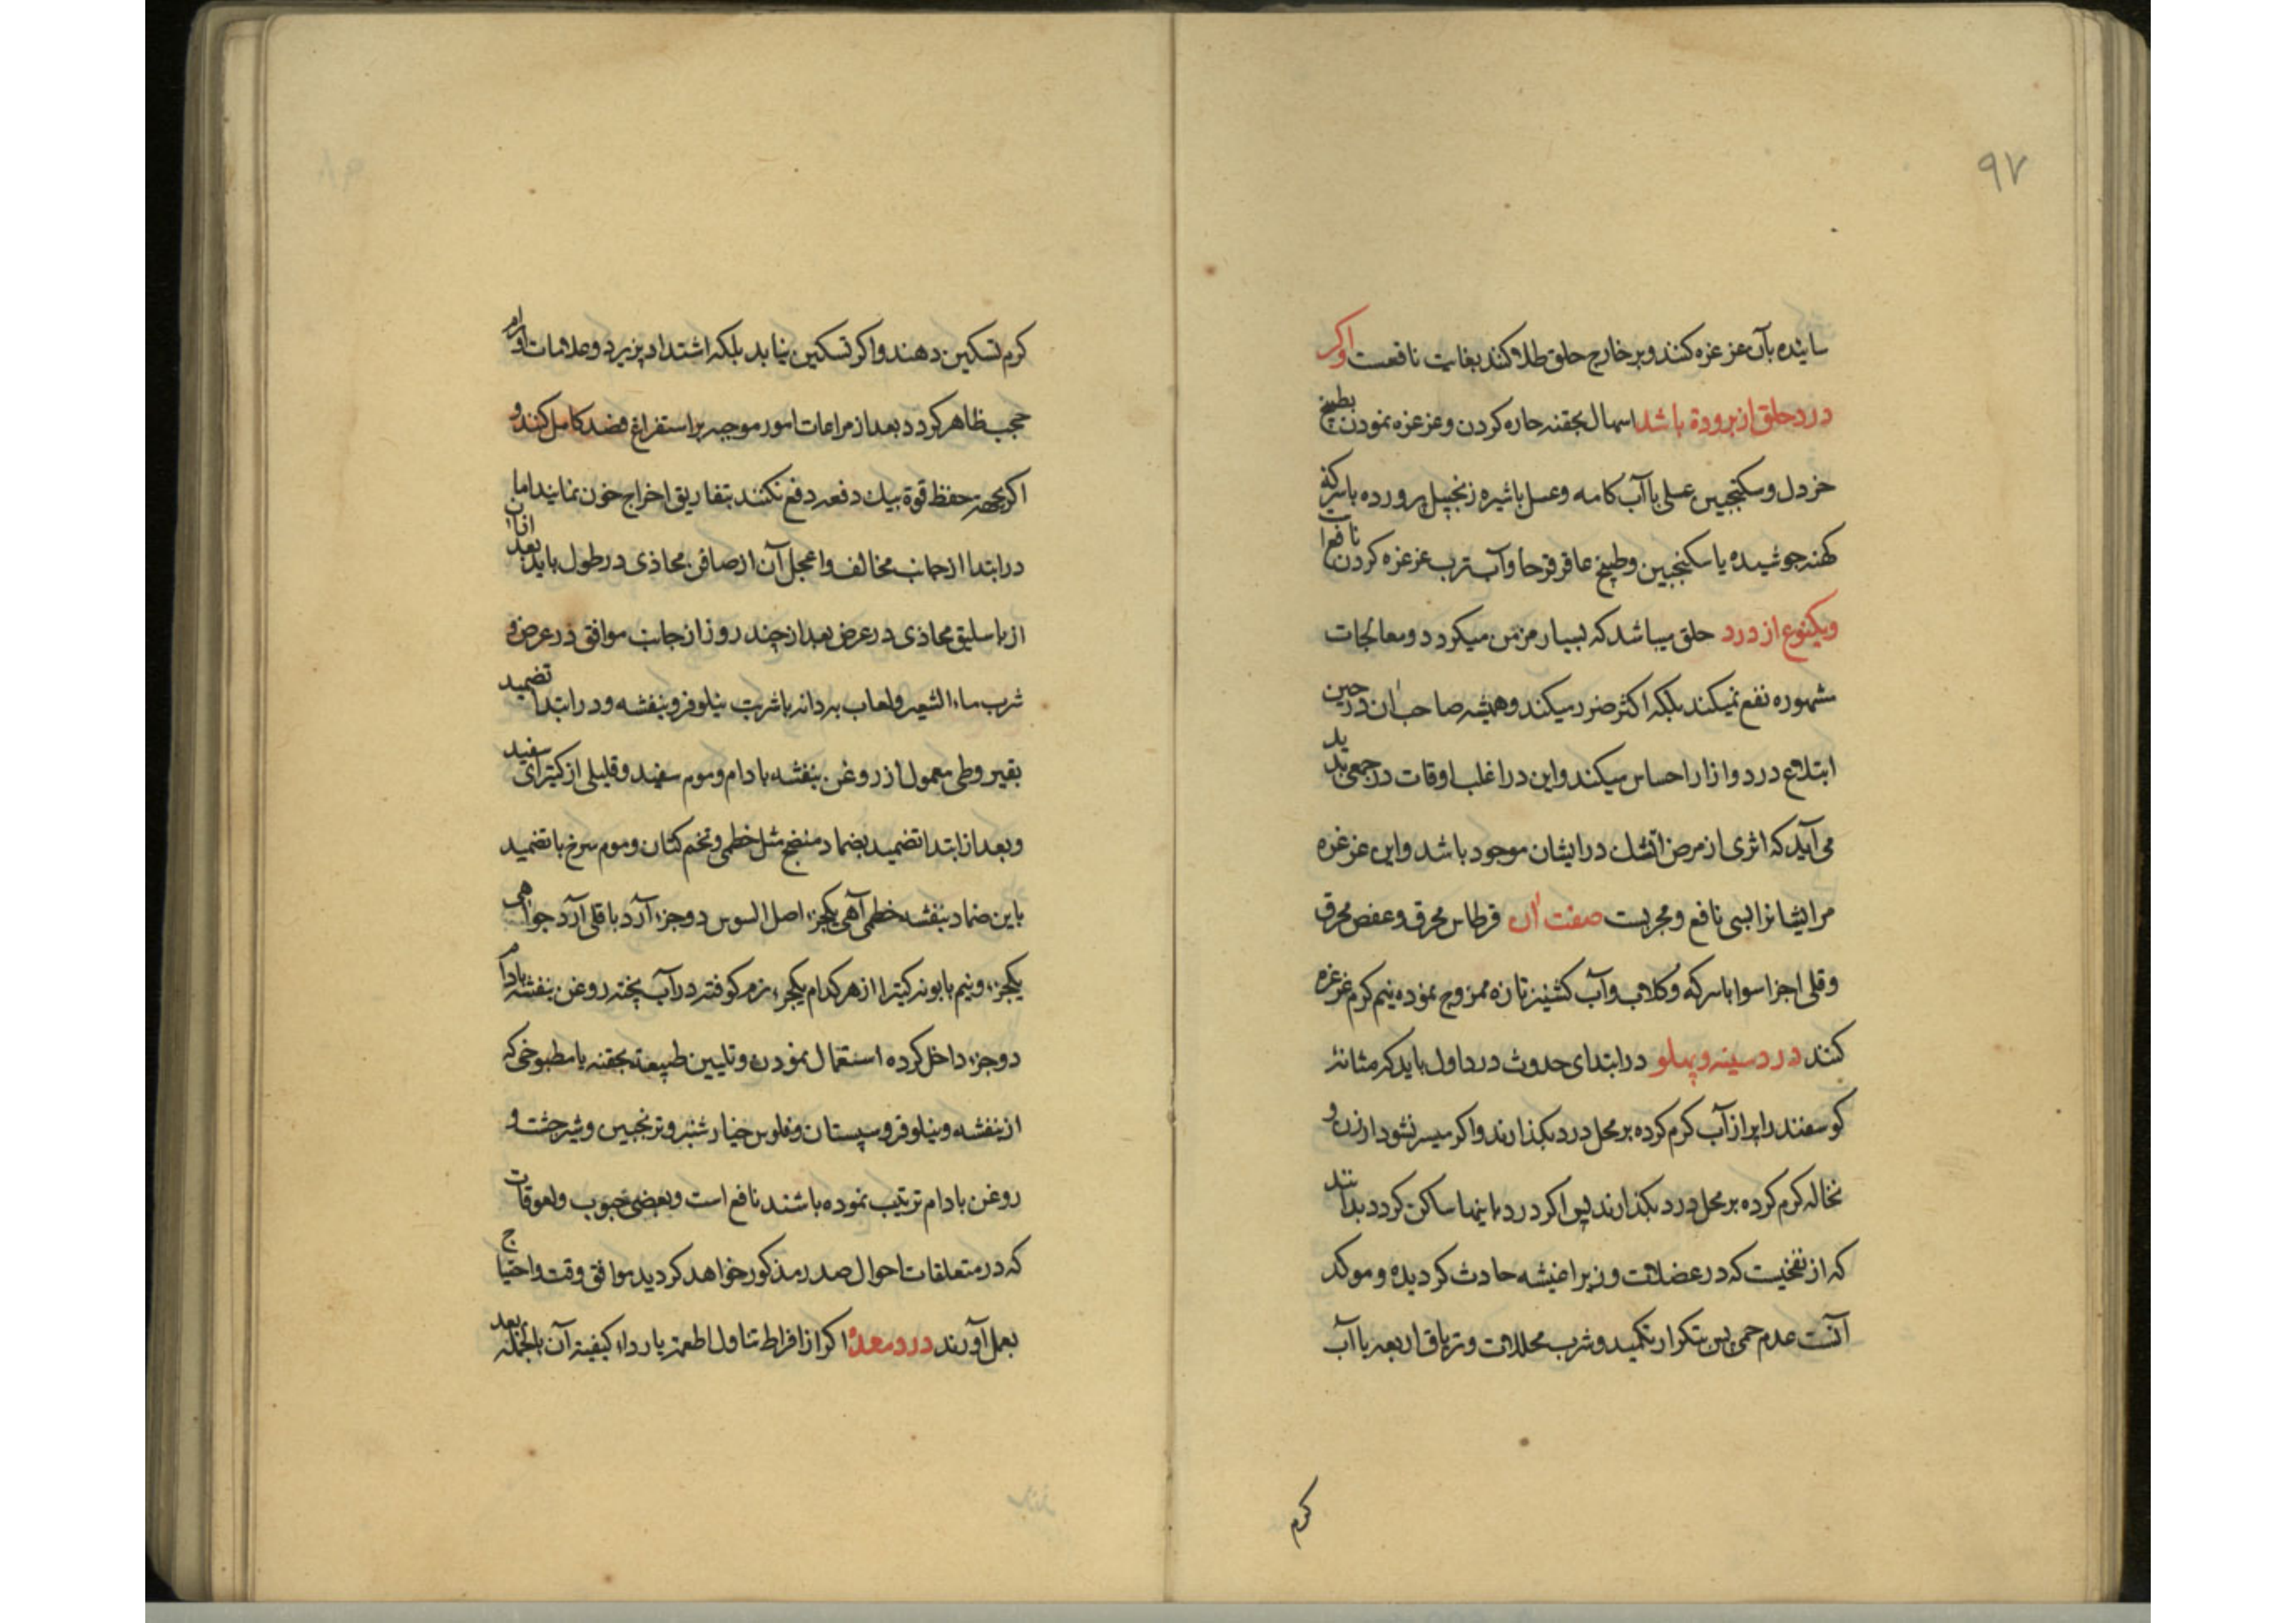 ۹۷
سائیده بآن غرغره کنند و بر خارج حلق طلا کنند بغایت نافعست و اکر
درد حلق از برودة باشد اسهال بحقنه حاره کردن و غرغره نمودن بطبیخ
خردل و سکنجبین عسلی با آب کامه و عسل باشیره زنجبیل پرورده باسرکهٔ
کهنه جوشیده یا سکنجبین و طبیخ عاقرقرحا و آب ترب غرغره کردن نافع است
و یکنوع از درد حلق میباشد که بسیار مزمن میکردد و معالجات
مشهوره نفع نمیکند بلکه اکثر ضرر میکند و همیشه صاحب آن در حین
ابتلاع درد و ازار احساس میکند و این در اغلب اوقات در جمعی پدید
می آید که اثری از مرض اتشک در ایشان موجود باشد و این غرغره
مر ایشانرا بسی نافع و مجربست صفت آن قرطاس محرق و عفص محرق
و قلی اجزا سوا باسرکه و کلاب و آب کشنیز تازه ممزوج نموده نیم کرم غرغره
کنند درد سینه و پهلو در ابتدای حدوث درد اول باید که مثانهٔ
کوسفند را پر از آب کرم کرده بر محل درد بکذارند و اکر میسر نشود ارزن و
نخاله کرم کرده بر محل درد بکذارند پس اکر درد باینها ساکن کردد بدانند
که از نفخیست که در عضلات و زیر اغشیه حادث کردیده و موکد
آنست عدم حمی پس بتکرار تکمید و شرب محللات و تریاق اربعه با آب
کرم
کرم تسکین دهند و اکر تسکین نیابد بلکه اشتداد پزیرد و علامات اورام
حجب ظاهر کردد بعد از مراعات امور موجبه بر استفراغ فصد کامل کنند و
اکر بجهة حفظ قوة بیک دفعه دفع نکنند بتفاریق اخراج خون نمایند اما
در ابتدا از جانب مخالف و اعجل آن از صافن محاذی در طول باید بعد ازان
از باسلیق محاذی در عرض بعد از چند روز از جانب موافق در عرض و
شرب ماء الشعیر و لعاب بهدانه باشربت نیلوفر و بنفشه و در ابتدا تضمید
بقیروطی معمول از روغن بنفشه بادام و موم سفید و قلیلی از کتیرای سفید
و بعد از ابتدا تضمید بضماد منضج مثل خطمی و تخم کتان و موم سرخ با تضمید
باین ضماد بنفشه خطمی آهی یکجزء اصل السوس دو جزء آرد باقلی آرد جو اهی
یکجزء و نیم بابونه کتیرا از هر کدام یکجزء نرم کوفته در آب پخته روغن بنفشه بادام
دو جزء داخل کرده استعمال نمودن و تلیین طبیعة بحقنه یا مطبوخی که
از بنفشه و نیلوفر و سپستان و فلوس خیار شنبر و ترنجبین و شیرخشت و
روغن بادام ترتیب نموده باشند نافع است و بعضی حبوب و لعوقات
که در متعلقات احوال صدر مذکور خواهد کردید موافق وقت و احتیاج
بعمل آورند درد معدهٔ اکر از افراط تناول اطعمه یا رداءة کیفیة آن بالجمله بعد